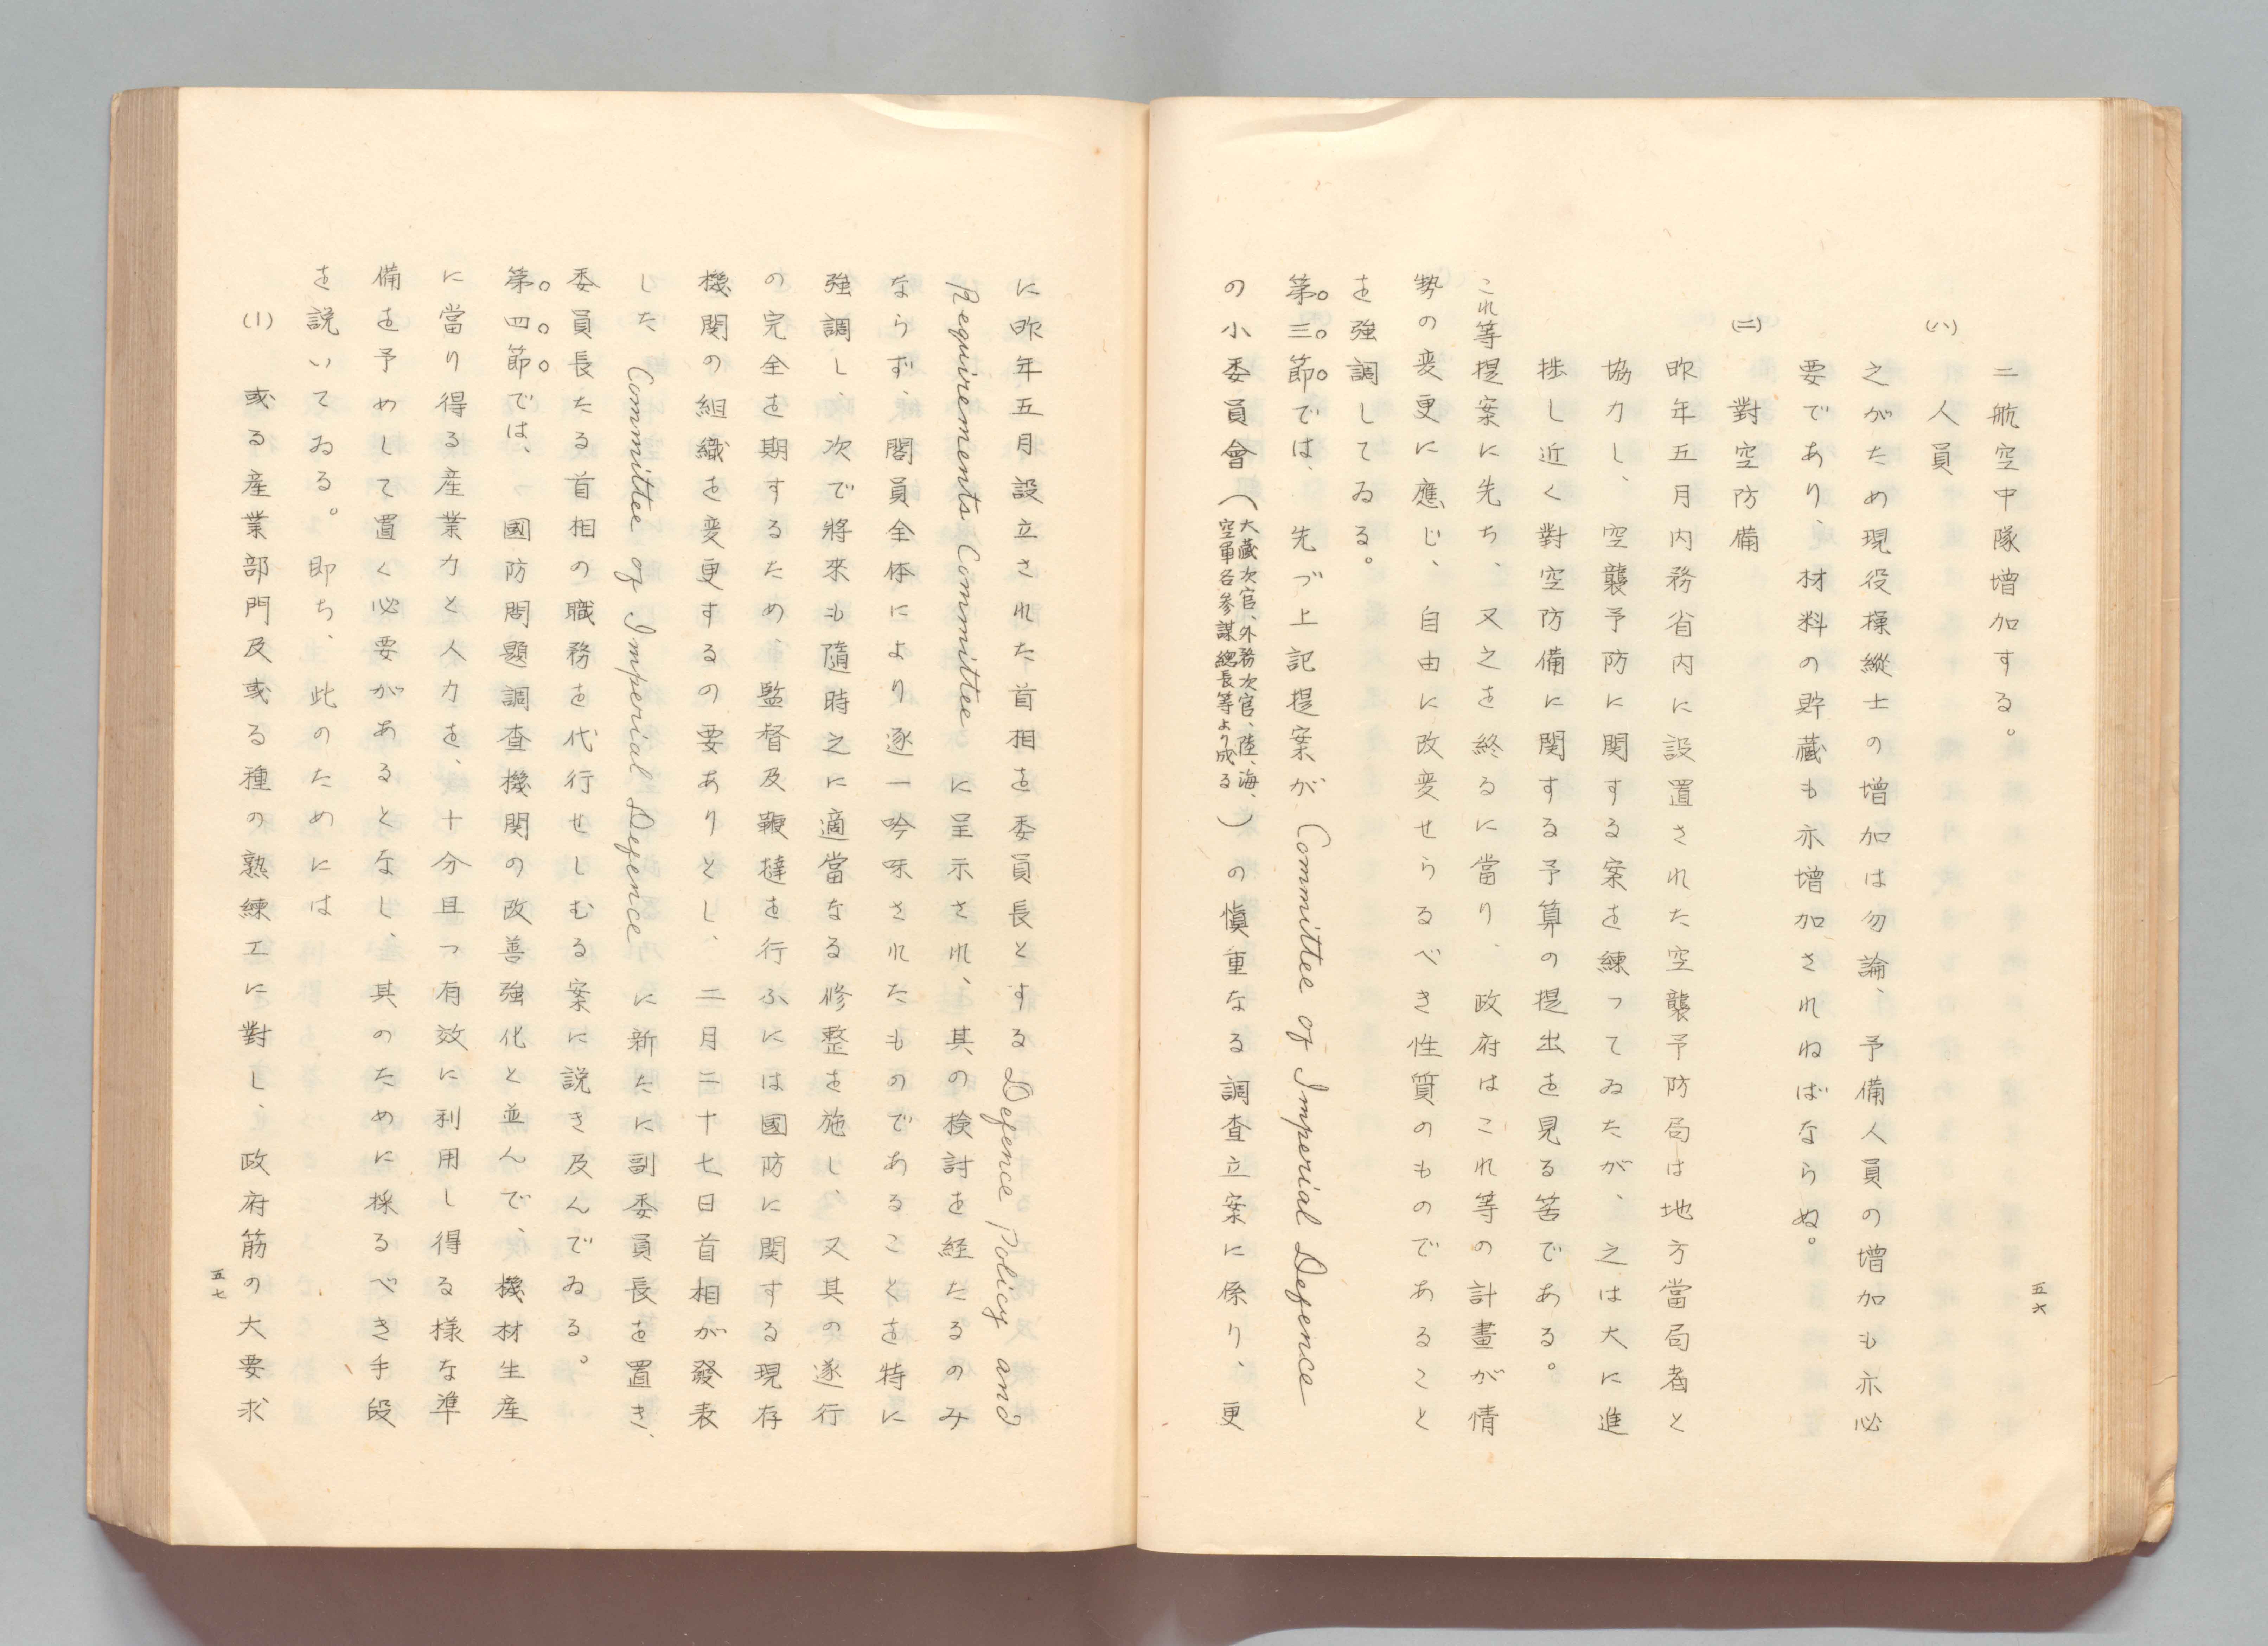 二航空中隊増加する。
(ハ) 人員
之がため現役操縱士の増加は勿論、予備人員の増加も亦必
要であり、材料の貯藏も亦増加されねばならぬ。
(ニ) 對空防備
昨年五月内務省内に設置された空襲予防局は地方當局者と
協力し、空襲予防に関する案を練つてゐたが、之は大に進
捗し近く對空防備に関する予算の提出を見る筈である。
これ等提案に先ち、又之を終るに當り、政府はこれ等の計畫が情
勢の変更に應じ、自由に改変せらるべき性質のものであること
を強調してゐる。
第三節では、先づ上記提案が Committee of Imperial Defence
の小委員會(大藏次官、外務次官、陸、海、空軍各参謀總長等より成る)の愼重なる調査立案に係り、更
五六
に昨年五月設立された首相を委員長とする Defence Policy and
Requirements Committee に呈示され、其の検討を経たるのみ
ならず、閣員全体により逐一吟味されたものであることを特に
強調し、次で將來も隨時之に適當なる修整を施し、又其の遂行
の完全を期するため、監督及鞭撻を行ふには國防に関する現存
機関の組織を変更するの要ありとし、二月二十七日首相が發表
した Committee of Imperial Defence に新たに副委員長を置き、
委員長たる首相の職務を代行せしむる案に説き及んでゐる。
第四節では、國防問題調査機関の改善強化と並んで、機材生産
に當り得る産業力と人力を、十分且つ有效に利用し得る様な準
備を予めして置く必要があるとなし、其のために採るべき手段
を説いてゐる。即ち、此のためには
(1) 或る産業部門及或る種の熟練工に對し、政府筋の大要求
五七